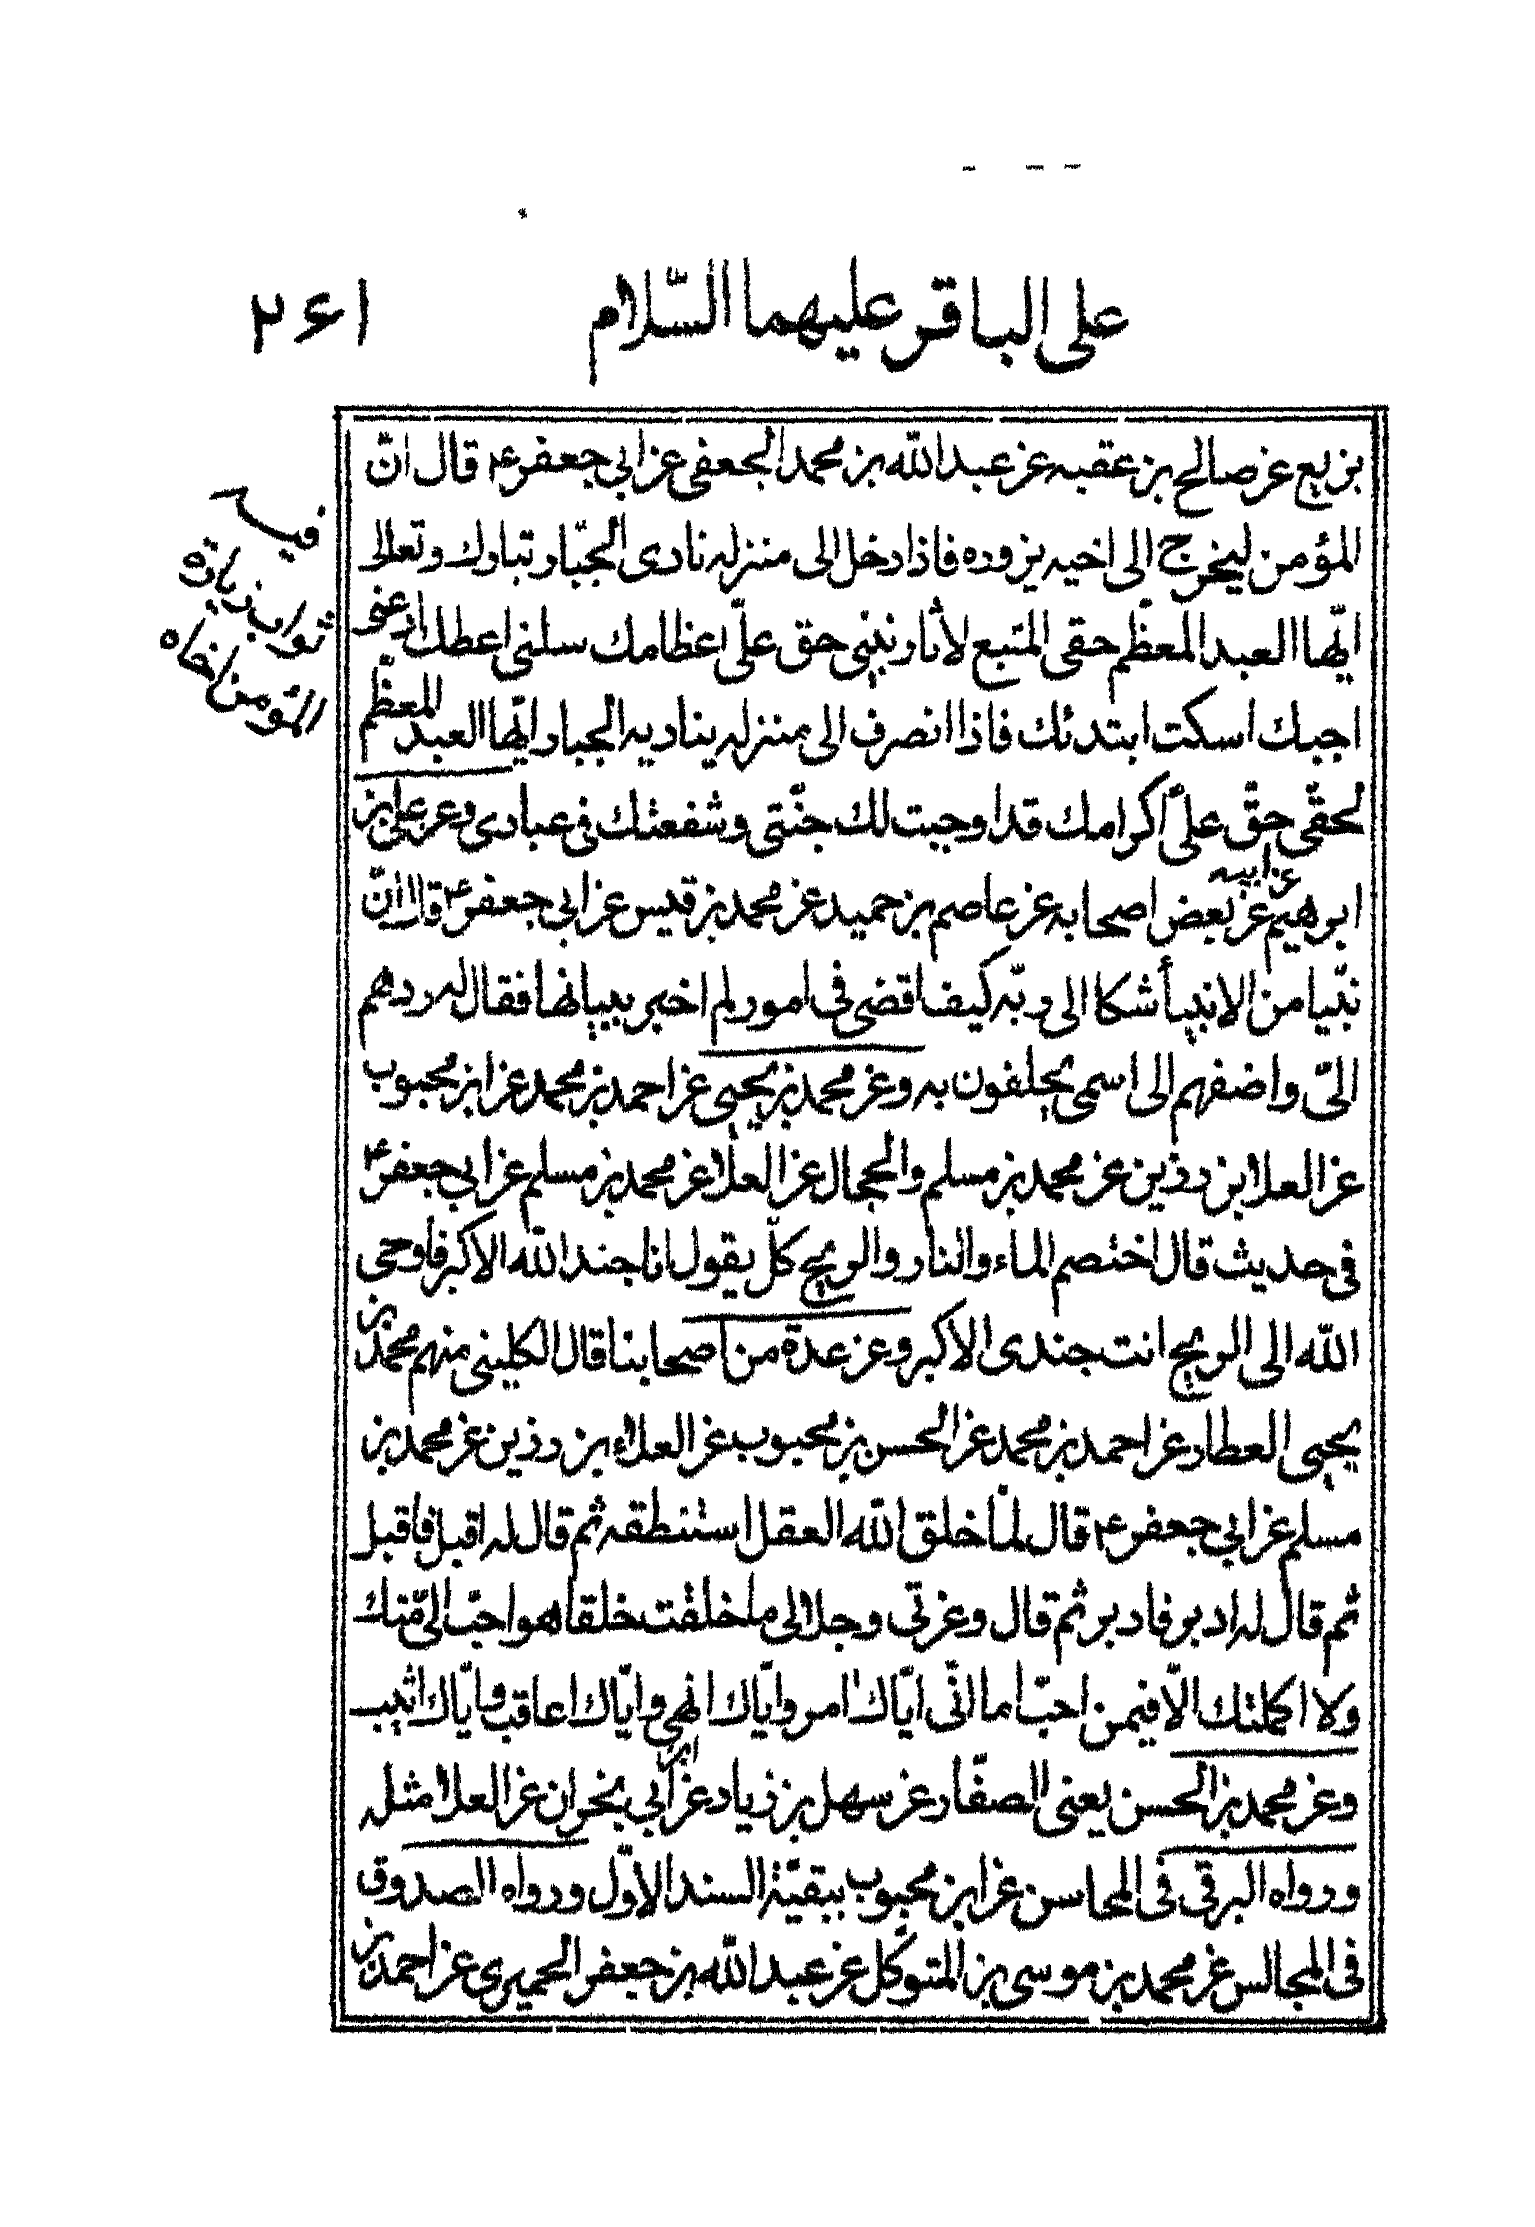 على الباقر عليهما السّلام
٢۶١
بن بزيع عن صالح بن عقبه عن عبد الله بن محمد الجعفى عن ابى جعفر ع قال انّ
المؤمن ليخرج الى اخيه يزوره فاذا دخل الى منزله نادى الجبّار تبارك وتعالى
ايّها العبد المعظّم حقى المتبع لأثار نبيّى حق علىّ اعظامك سلنى اعطك ادعنى
اجبك اسكت ابتدئك فاذا انصرف الى منزله يناديه الجبار ايّها العبد المعظّم
لحقّى حقّ علىّ اكرامك قد اوجبت لك جنّتى وشفعتك فى عبادى وعن على بن
ابرهيم عن ابيه عن بعض اصحابه عن عاصم بن حميد عن محمد بن قيس عن ابى جعفر ع قال انّ
نبّيا من الانبيآء شكا الى ربّه كيف اقضى فى امور لم اخبر ببيانها فقال له ردهم
الىّ واضفهم الى اسمى يحلفون به وعن محمد بن يحيى عن احمد بن محمد عن ابن محبوب
عن العلا بن رزين عن محمد بن مسلم والحجال عن العلا عن محمد بن مسلم عن ابى جعفر ع
فى حديث قال اختصم المآء والنار والريح كلّ يقول انا جند الله الاكبر فاوحى
الله الى الريح انت جندى الاكبر وعن عدة من اصحابنا قال الكلينى منهم محمد بن
يحيى العطار عن احمد بن محمد عن الحسن بن محبوب عن العلاء بن رزين عن محمد بن
مسلم عن ابى جعفر ع قال لمّا خلق الله العقل استنطقه ثم قال له اقبل فاقبل
ثم قال له ادبر فادبر ثم قال وعزتى وجلالى ما خلقت خلقا هو احبّ الىّ منك
ولا اكملتك الّا فيمن احبّ اما انّى ايّاك امر وايّاك انهى وايّاك اعاقب وايّاك اثيب
وعن محمد بن الحسن يعنى الصفّار عن سهل بن زياد عن ابن ابى نجران عن العلا مثله
ورواه البرقى فى المحاسن عن ابن محبوب ببقيّة السند الاوّل ورواه الصدوق
فى المجالس عن محمد بن موسى بن المتوكل عن عبد الله بن جعفر الحميرى عن احمد بن
فيـ
ثواب زيارة
المؤمن اخاه